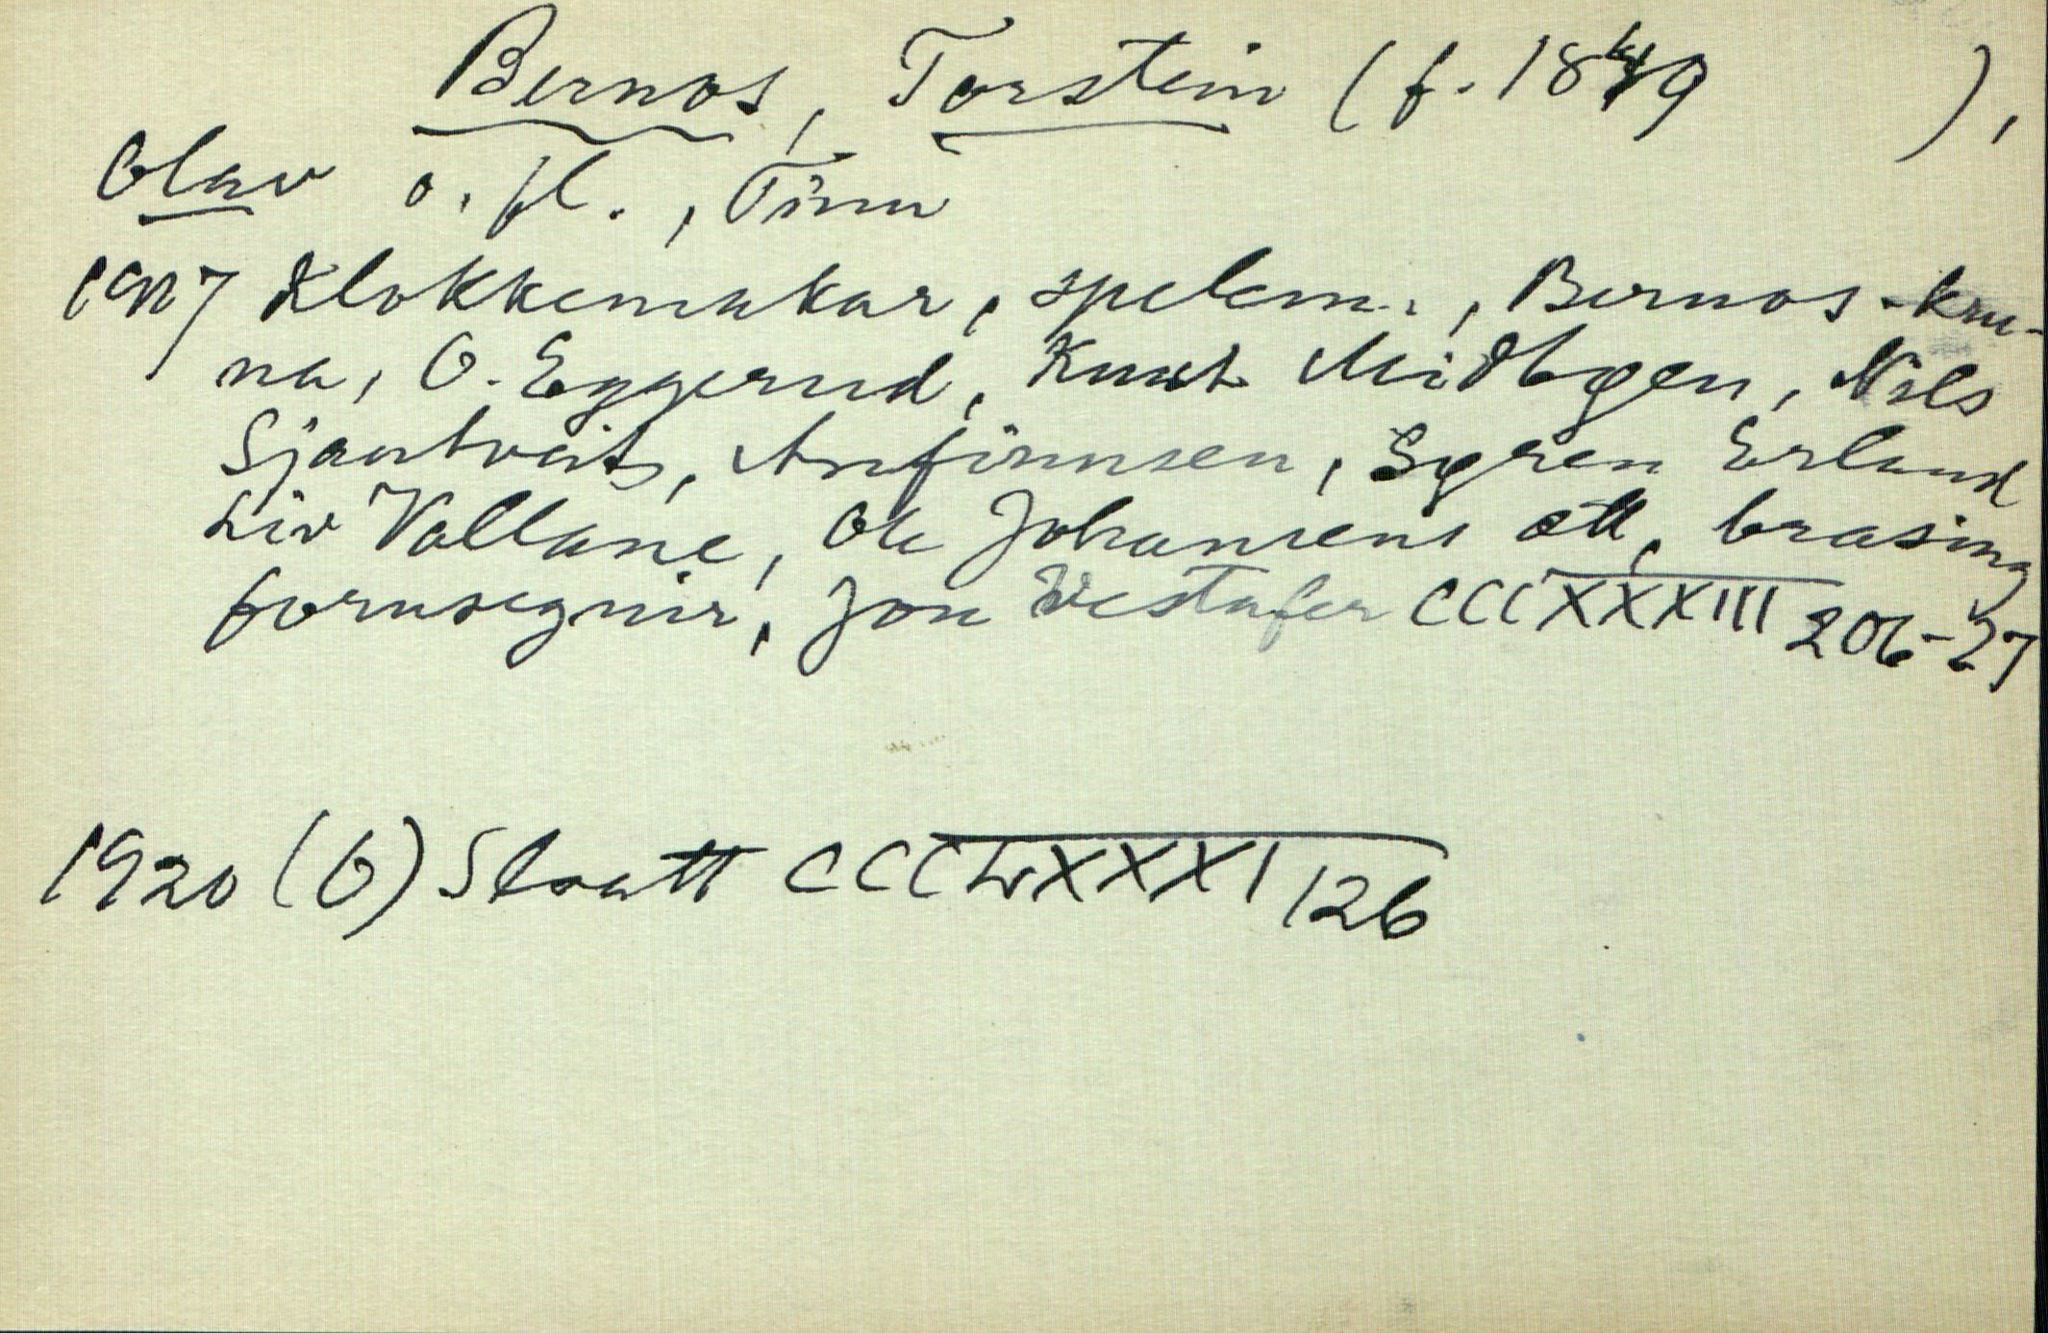 Bernos, Torstein (f. 1849 ),
Olav o. fl., Tinn
1917 Klokkemakar, spelem., Bernos-kru-
na, O. Eggerud, Knut Midbøen, Nils
Sjaatveit, Arnfinnsen, Syren Erland
Liv Vallane, Ole Johansens ætt, brasing
fornsegnir, Jon Vestafer CCCXXXIII 206-27
1920 (O) Slaatt CCCLXXXI 126